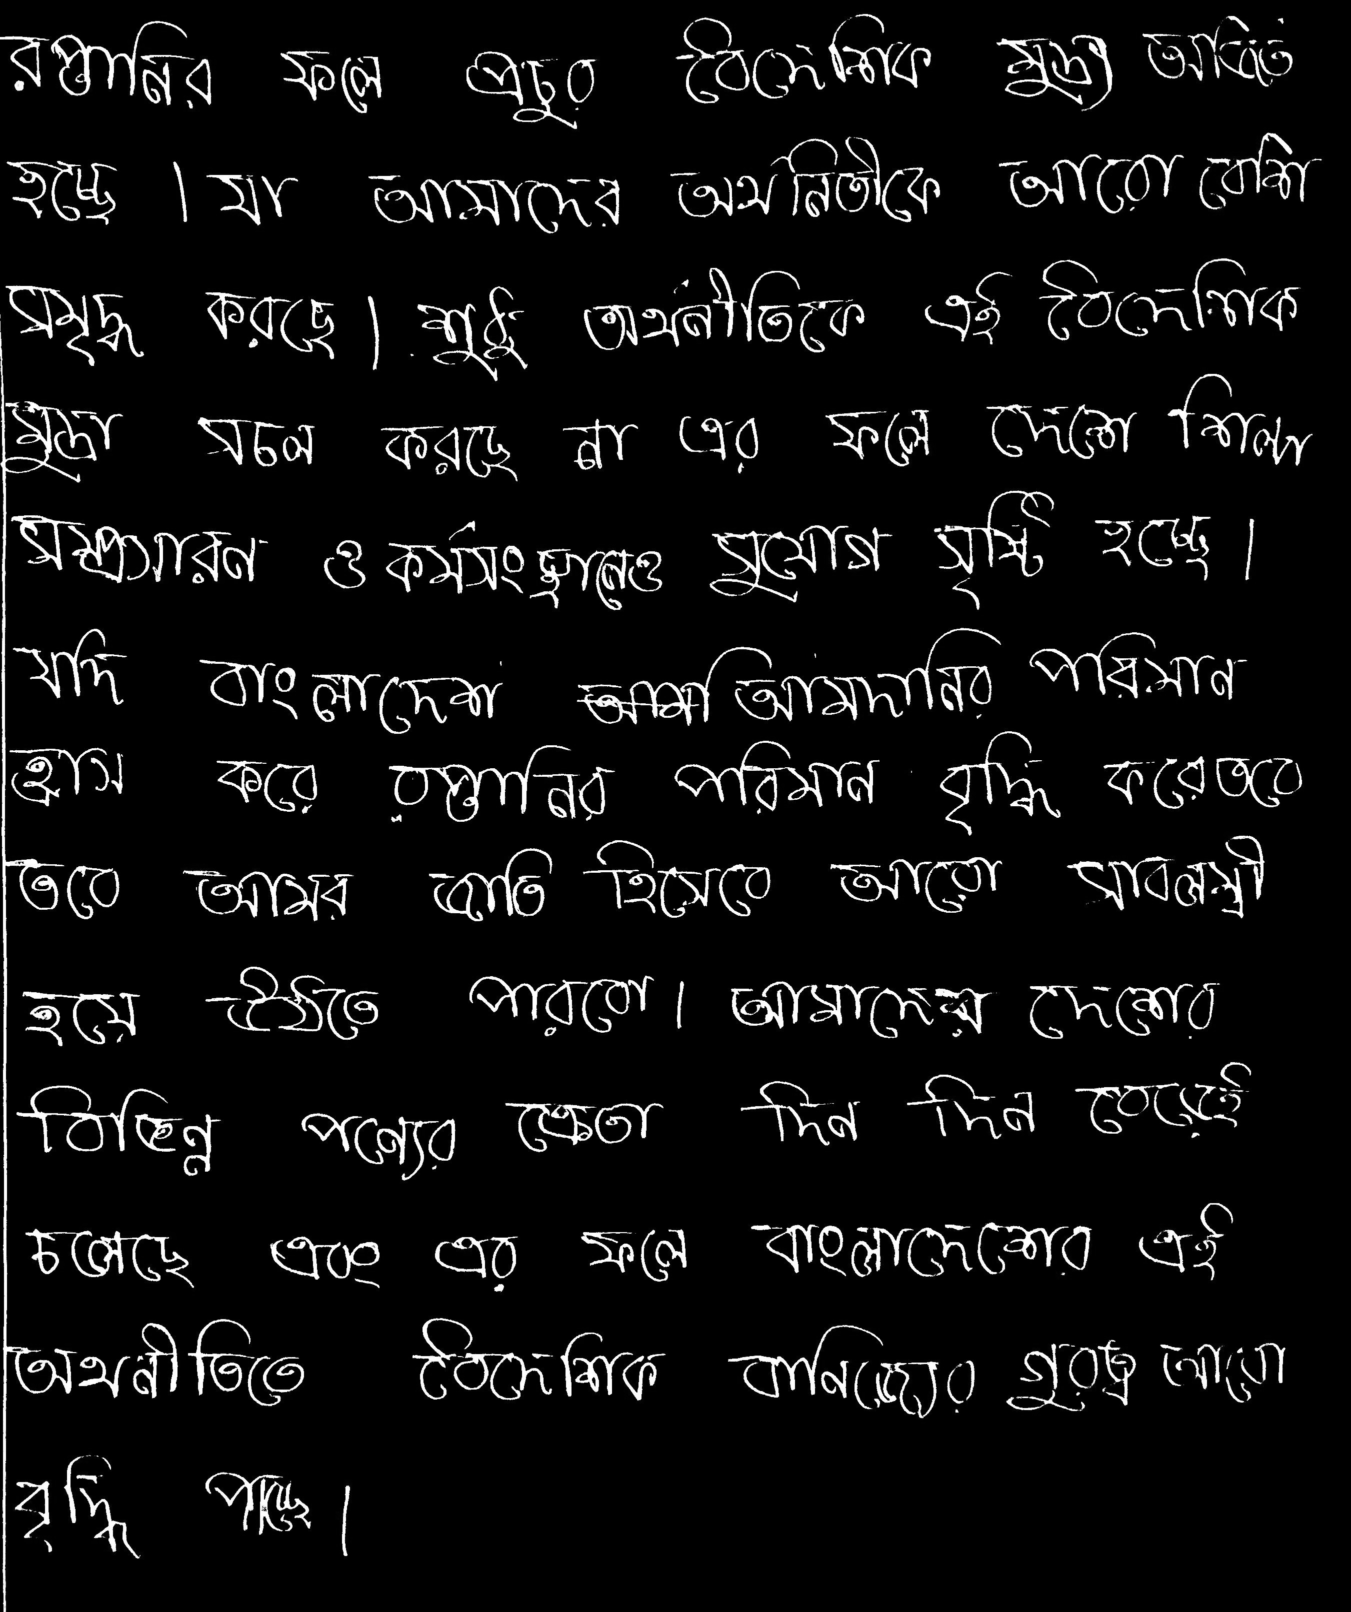 রপ্তানির ফলে প্রচুর বৈদেশিক মুদ্রা অর্জিত
হচ্ছে । যা আমাদের অর্থনিতীকে আরো বেশি
সমৃদ্ধ করছে । শুধু অর্থনীতিকে এই বৈদেশিক
মুদ্রা সচল করছে না এর ফলে দেশে শিল্প
সম্প্রসারন ও কর্মসংস্থানেও সুযোগ সৃষ্টি হচ্ছে ।
যদি বাংলাদেশ আমদানির পরিমান
হ্রাস করে রপ্তানির পরিমান বৃদ্ধি করে তবে
তবে আমর জাতি হিসেবে আরো সাবলম্বী
হয়ে উঠতে পারবো । আমাদের দেশের
বিভিন্ন পণ্যের ক্রেতা দিন দিন বেয়েই
চলেছে এবং এর ফলে বাংলাদেশের এই
অথনীতিতে বৈদেশিক বানিজ্যের গুরত্ব আরো
বৃদ্ধি পাচ্ছে ।